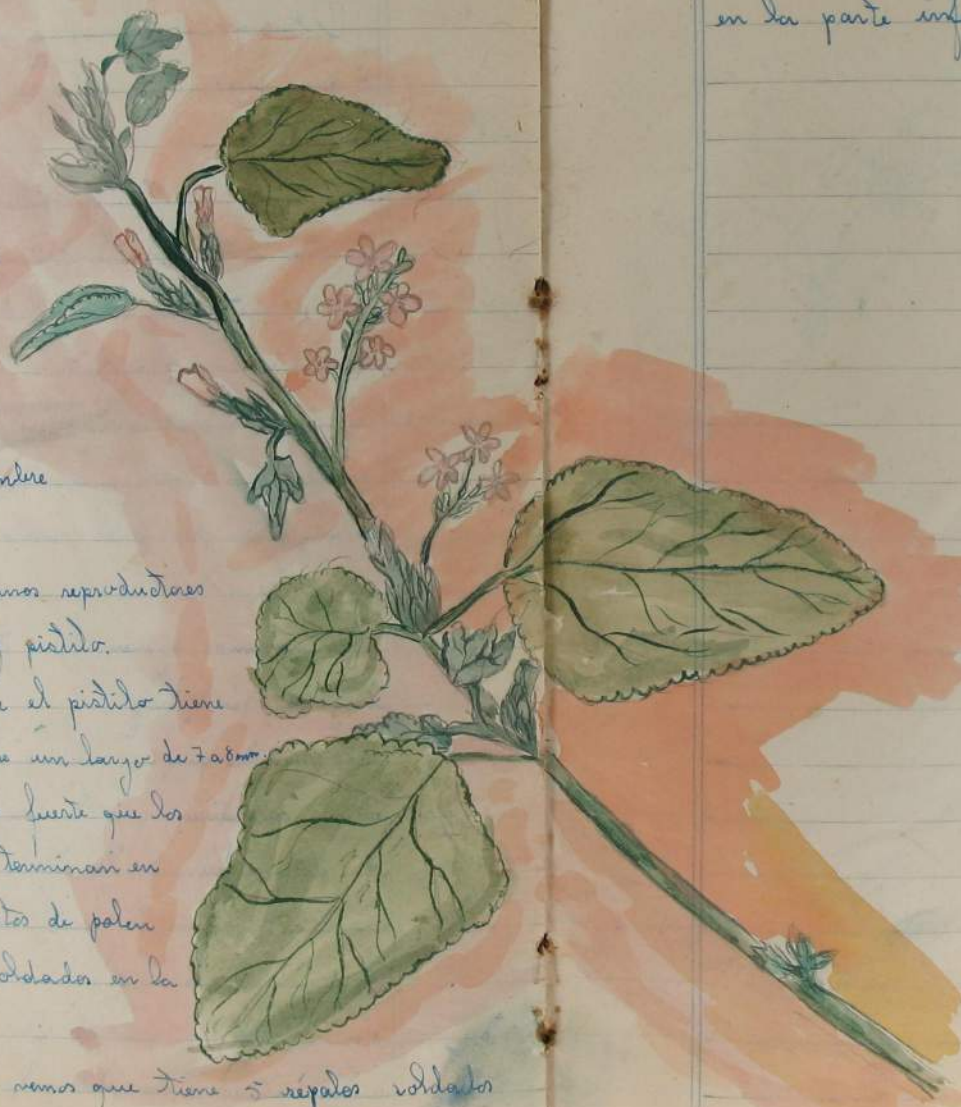 mbre
nos reproductores
pistilo.
e el pistilo tiene
e un largo de 7 a 8 mm.
fuerte que los
terminan en
tos de polen
oldados en la
vemos que tiene 5 sépalos soldados
en la parte inf